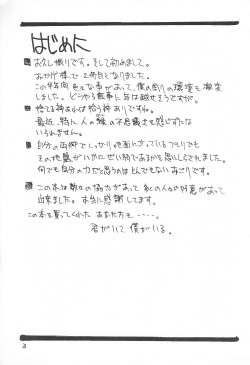 はじめに
お久し振りです。そして初めまして。
おかげ様で2冊目となりました。
この半年間色々な事があって、僕の周りの環境も激変
しました。どうやら無事に年は越せそうですが。
捨てる神あれば拾う神ありですね。
最近、特に人の縁の不思議さを感じずには
いられません。
自分の両脚でしっかり地面に立っているつもりでも
その地盤がいかにぜい弱であるかを思いしらされました。
何でも自分の力だと思うのはとんでもないおごりです。
この本は数々の協力があって 私の人々の好意があって
出来ました。本当に感謝してます。
この本を買ってくれた あなた方も・・・・。
君がいて 僕がいる。
3